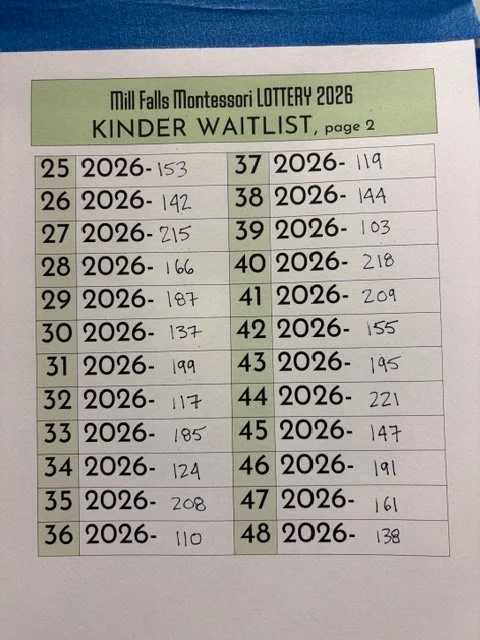 Mill Falls Montessori LOTTERY 2026
KINDER WAITLIST, page 2
25 2026-153 37 2026-119
26 2026-142 38 2026-144
27 2026-215 39 2026-103
28 2026-166 40 2026-218
29 2026-187 41 2026-209
30 2026-137 42 2026-155
31 2026-199 43 2026-195
32 2026-117 44 2026-221
33 2026-185 45 2026-147
34 2026-124 46 2026-191
35 2026-208 47 2026-161
36 2026-110 48 2026-138